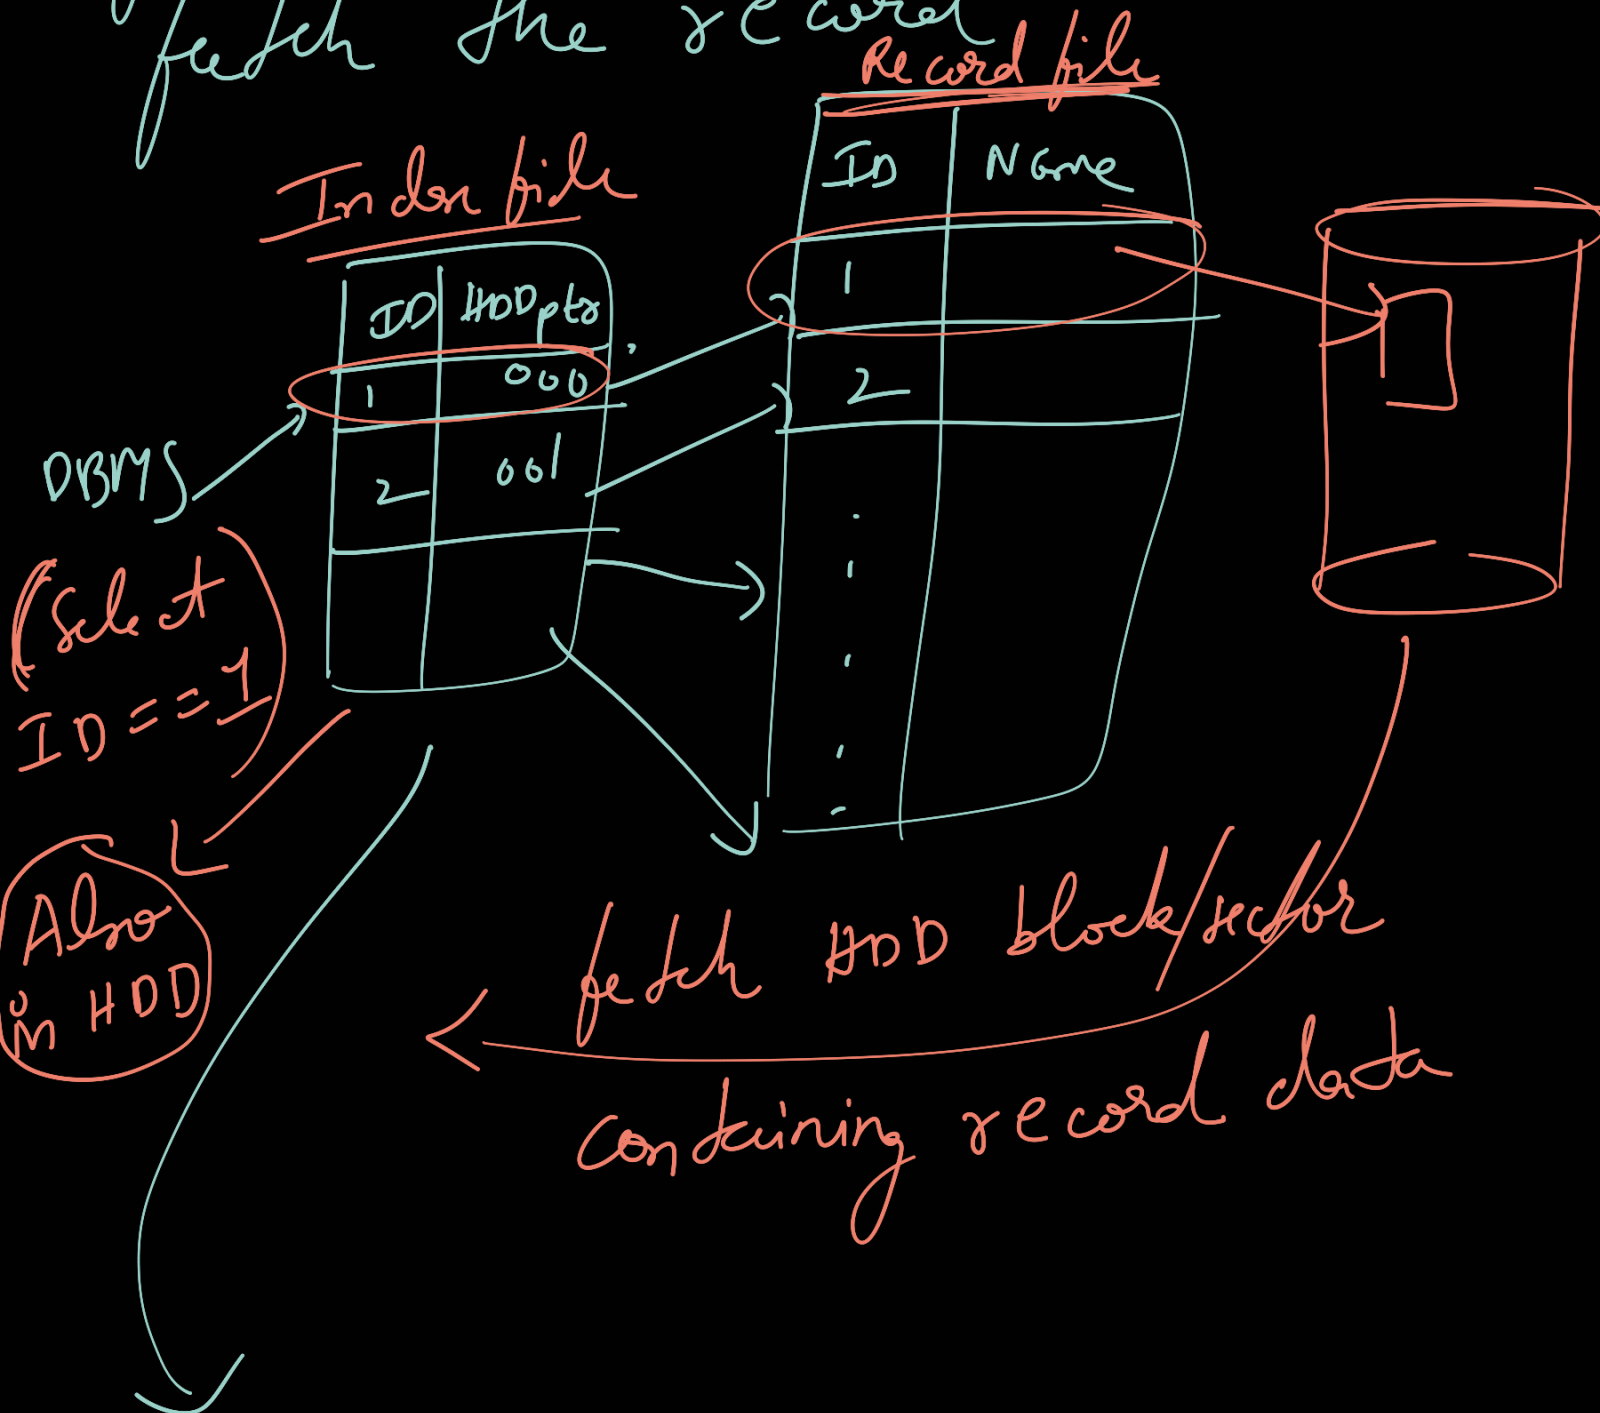 fetch the record
Record file
Index file
ID Name
ID HDD ptr
1
1 000
2
DBMS
2 001
(Select
ID == 1)
Also
in HDD
fetch HDD block/sector
containing record data